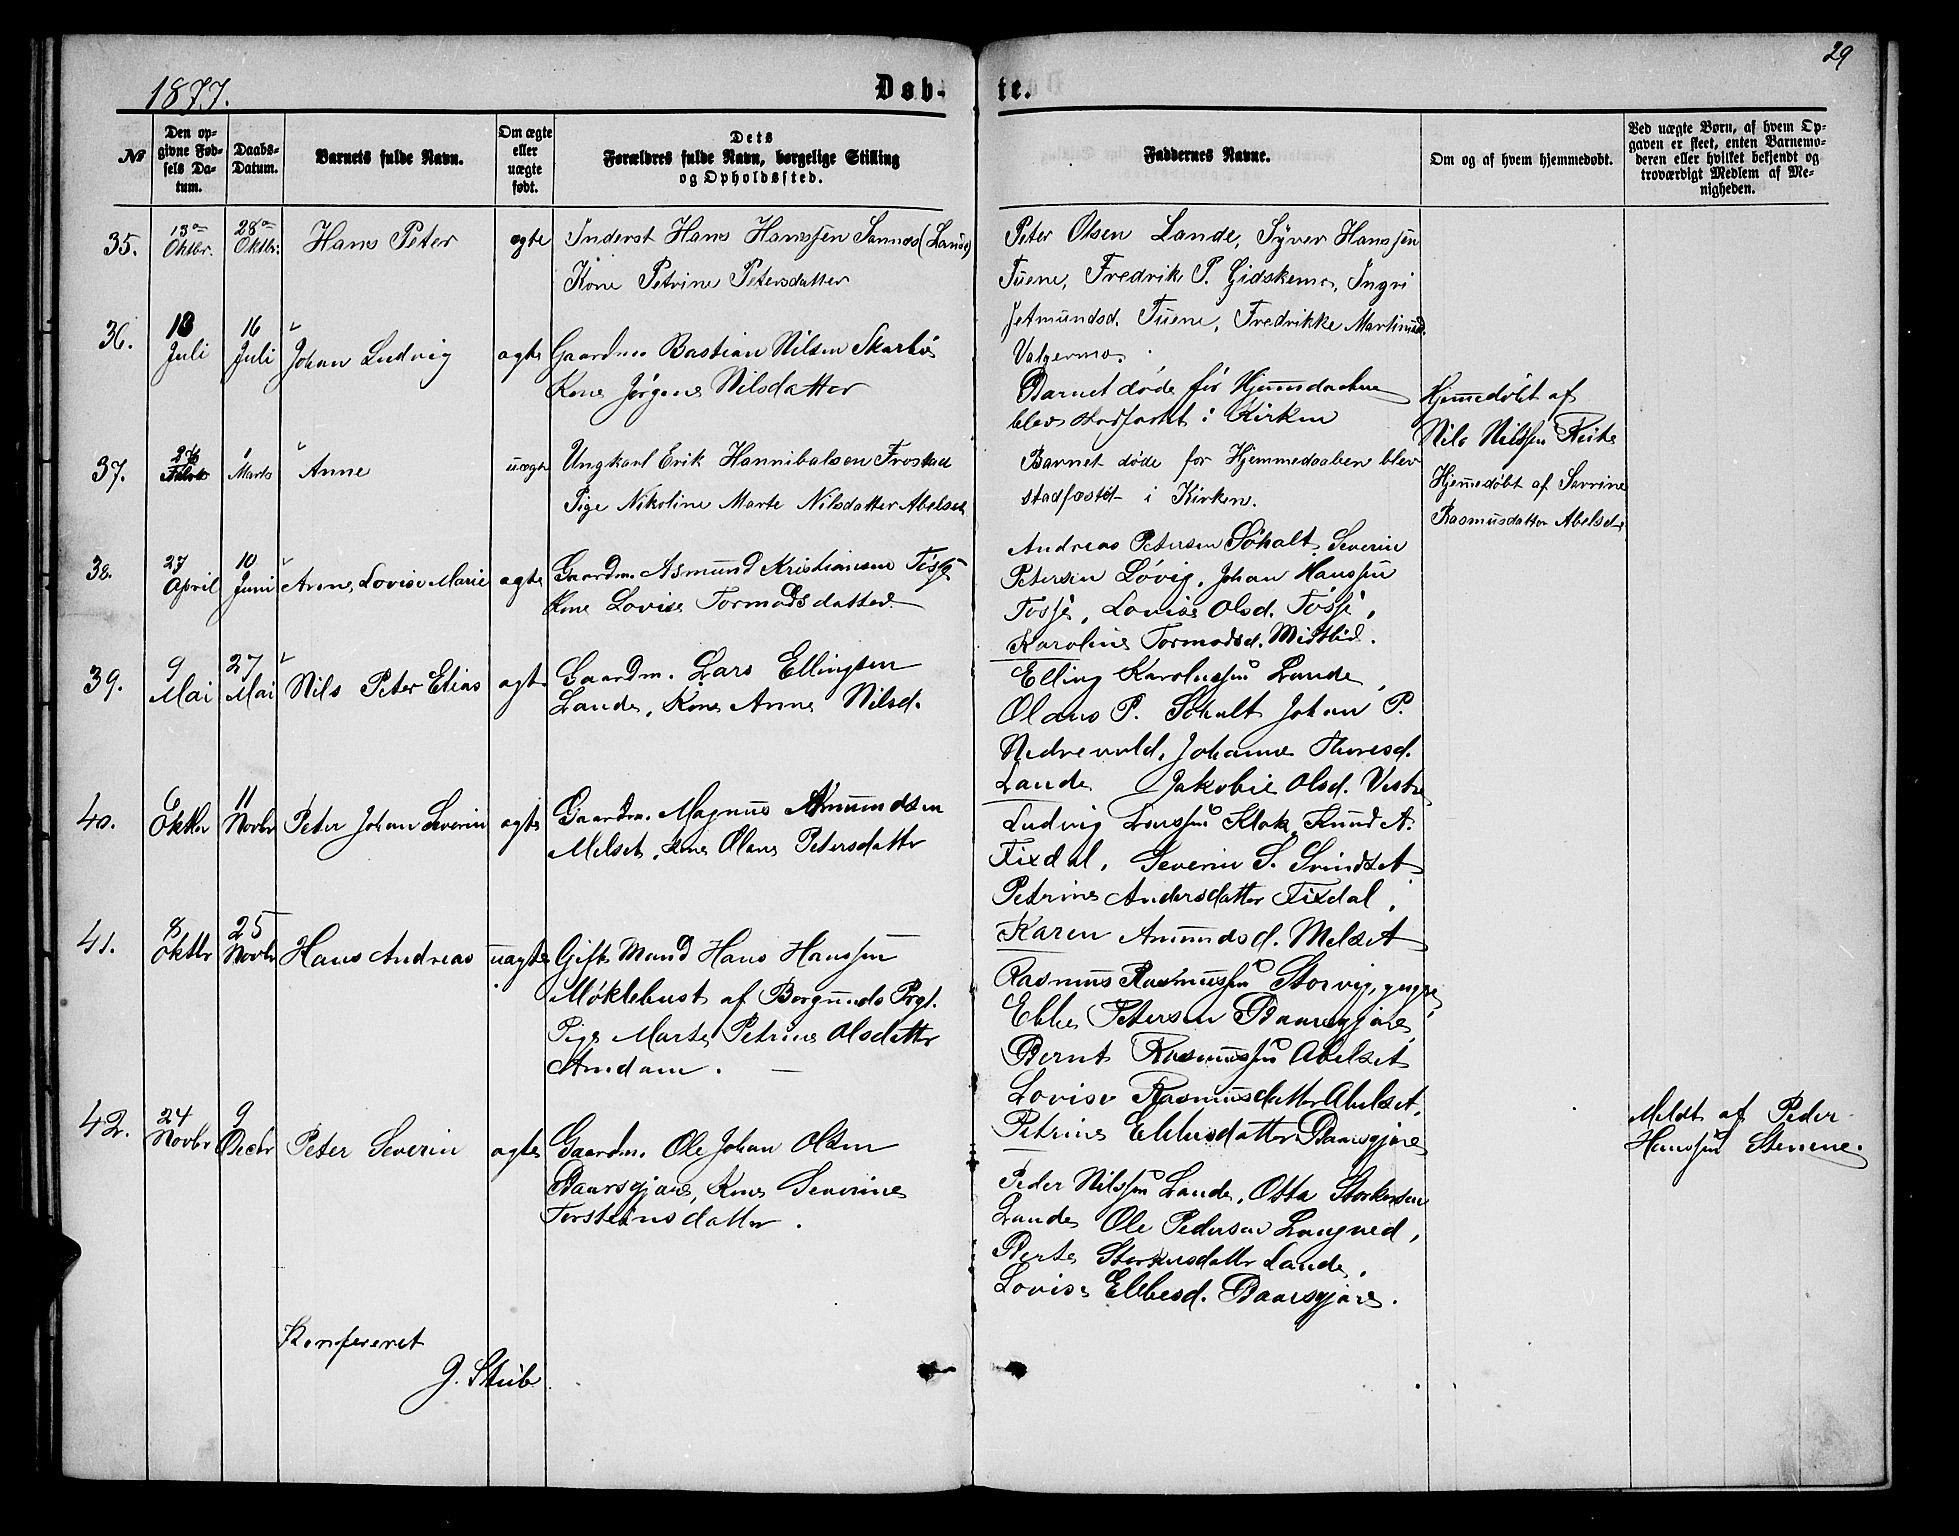 29
1877.
Døb-te.
№
Den opgivne Fødsels Datum.
Daabs-Datum.
Barnets fulde Navn.
Om ægte eller uægte født.
Dets Forældres fulde Navn, borgelige Stilling og Opholdssted.
Faddernes Navne.
Om og af hvem hjemmedøbt.
Ved uægte Børn, af hvem Opgaven er skeet, enten Barnemoderen eller hvilket bekjendt og troværdigt Medlem af Menigheden.
35. 13de Oktbr. 28de Oktbr. Hans Peter ægte
Inderst Hans Hanssen Sannes (Lande)
Kone Petrine Petersdatter
Peter Olsen Lande, Syver Hanssen
Tuene, Fredrik P. Gidskemo, Ingri
Jetmundsd. Tuene, Fredrikke Martinusd.
Valgermo.
36. 13 Juli 16 Juli Johan Ludvig ægte
Gaardm. Bastian Nilsen Skarbø
Kone Jørgine Nilsdatter
Barnet døde før Hjemmedaaben
blev stadfæstet i Kirken
Hjemmedøbt af
Nils Nilssen Reite
37. Marts Anne uægte
Ungkarl Erik Hannibalsen Frostad
Pige Nikoline Marte Nilsdatter Abelset
Barnet døde før Hjemmedaaben blev
stadfæstet i Kirken.
Hjemmedøbt af Savrine
Rasmusdatter Abelset
38. 27 April 10 Juni Anne Lovise Marie ægte
Gaardm. Asmund Kristiansen Tøsse
Kone Lovise Tormodsdatter.
Andreas Petersen Søholt, Severin
Petersen Løvig, Johan Hanssen
Tøsse, Lovise Olsd. Tøsse,
Karoline Tormodsd. Midtlid.
39. 9 Mai 27 Mai Nils Peter Elias ægte
Gaardm. Lars Ellingsen
Lande, Kone Anne Nilsd.
Elling Karolussen Lande,
Olaus P. Søholt Johan P.
Nedrevold, Johanne Thoresd.
Lande Jakobie Olsd. Vestre
40. 6 Oktbr 11 Novbr Peter Johan Severin ægte
Gaardm. Magnus Amundsen
Melset, Kone Olane Petersdattr
Ludvig Larssen Klok, Knud A.
Fixdal, Severin S. Svindset
Petrine Andersdatter Fixdal,
Karen Amundsd. Melset
41. 8 Oktbr 25 Novbr Hans Andreas uægte
Gift Mand Hans Hanssen
Møklebust af Borgunds Prgj.
Pige Marte Petrine Olsdattr
Amdam.
Rasmus Rasmussen Storvig,
Ebbe Petersen Baarsgjære,
Bernt Rasmussen Abelset
Lovise Rasmusdattr Abelset,
Petrine Ebbesdatter Baarsgjære
Meldt af Peder
Hanssen Stenene.
42. 24 Novbr 9 Decbr Peter Severin ægte
Gaardm. Ole Johan Olsen
Baarsgjære, Kone Severine
Torsteinsdatter.
Peder Nilssen Lande, Otto Storkersen
Lande Ole Pedersen Langved,
Berte Storkersdattr Lande,
Lovise Ebbesd. Baarsgjære.
Konfereret
J. Stub